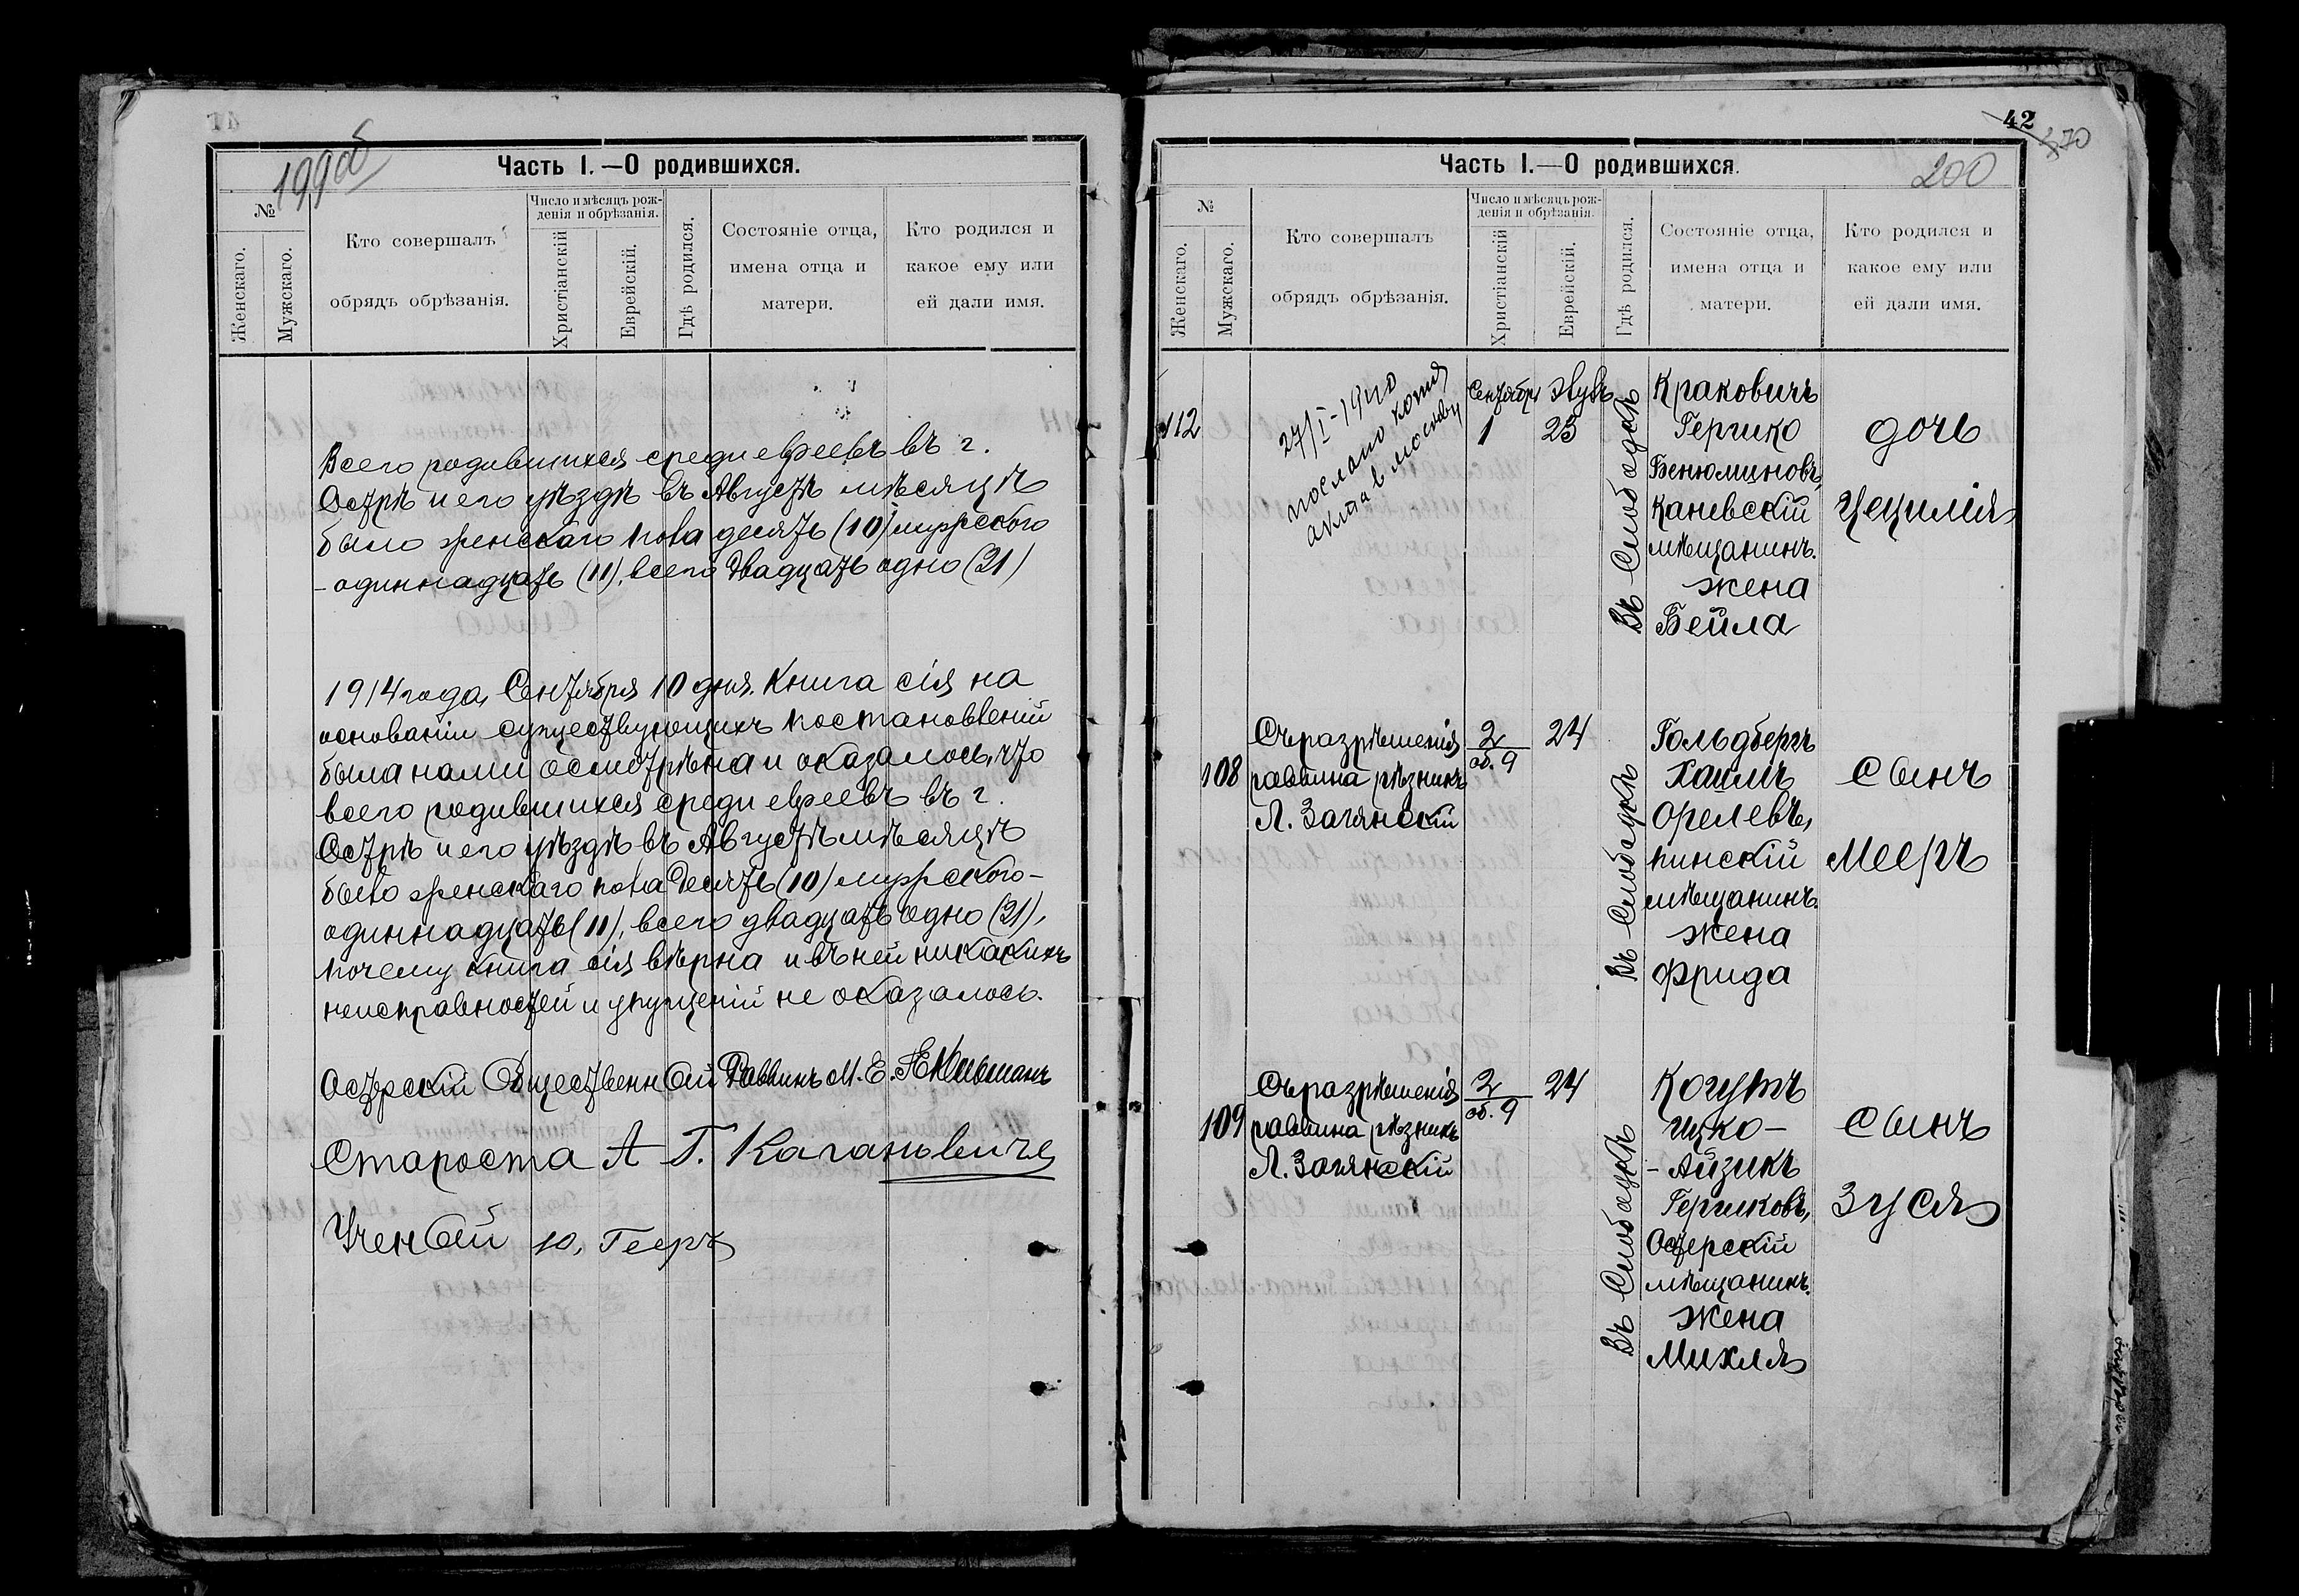 199об
Часть I.—О родившихся.
№
Женскаго.
Мужскаго.
Кто совершалъ
обрядъ обрѣзанія.
Число и мѣсяцъ рож-
денія и обрѣзанія.
Христіанскій
Еврейскій.
Гдѣ родился.
Состояніе отца,
имена отца и
матери.
Кто родился и
какое ему или
ей дали имя.
Всего родившихся среди евреевъ въ г.
Острѣ и его уѣздѣ въ Августѣ мѣсяцѣ
было женскаго пола десять (10) мужского
- одиннадцать (11), всего двадцать одно (21)
1914 года, Сентября 10 дня. Книга сія на
основаніи существующихъ постановленій
была нами осмотрѣна и оказалось, что
всего родившихся среди евреевъ въ г.
Острѣ и его уѣздѣ въ Августѣ мѣсяцѣ
было женскаго пола десять (10) мужского-
одиннадцать (11), всего двадцать одно (21),
почему книга сія вѣрна и въ ней никакихъ
неисправностей и упущеній не оказалось.
Остерскій Общественный Раввинъ М. Е.
Староста А Г. Кагановичъ
Ученый Ю, Гееръ
42
370
Часть I.—О родившихся.
200
№
Женскаго.
Мужскаго.
Кто совершалъ
обрядъ обрѣзанія.
Число и мѣсяцъ рож-
денія и обрѣзанія.
Христіанскій
Еврейскій.
Гдѣ родился.
Состояніе отца,
имена отца и
матери.
Кто родился и
какое ему или
ей дали имя.
112
27/I-1940
послано копия
акта в москву
Сентябрь
1
Элулъ
23
Въ Слободкѣ
Краковичъ
Гершко
Бенюминовъ,
Каневскій
мѣщанинъ.
жена
Бейла
дочь
Цецилія
108
Съ разрѣшенія
раввина рѣзникъ
Л. Загянскій
2
об. 9
24
Въ Слободкѣ
Гольдбергъ
Хаимъ
Орелевъ,
пинскій
мѣщанинъ.
жена
Фрида
сынъ
Мееръ
109
Съ разрѣшенія
раввина рѣзникъ
Л. Загянскій
2
об. 9
24
Въ Слободкѣ
Когутъ
Ицко-
-Айзикъ
Гершковъ,
Остерскій
мѣщанинъ.
жена
Михля
сынъ
Зуся